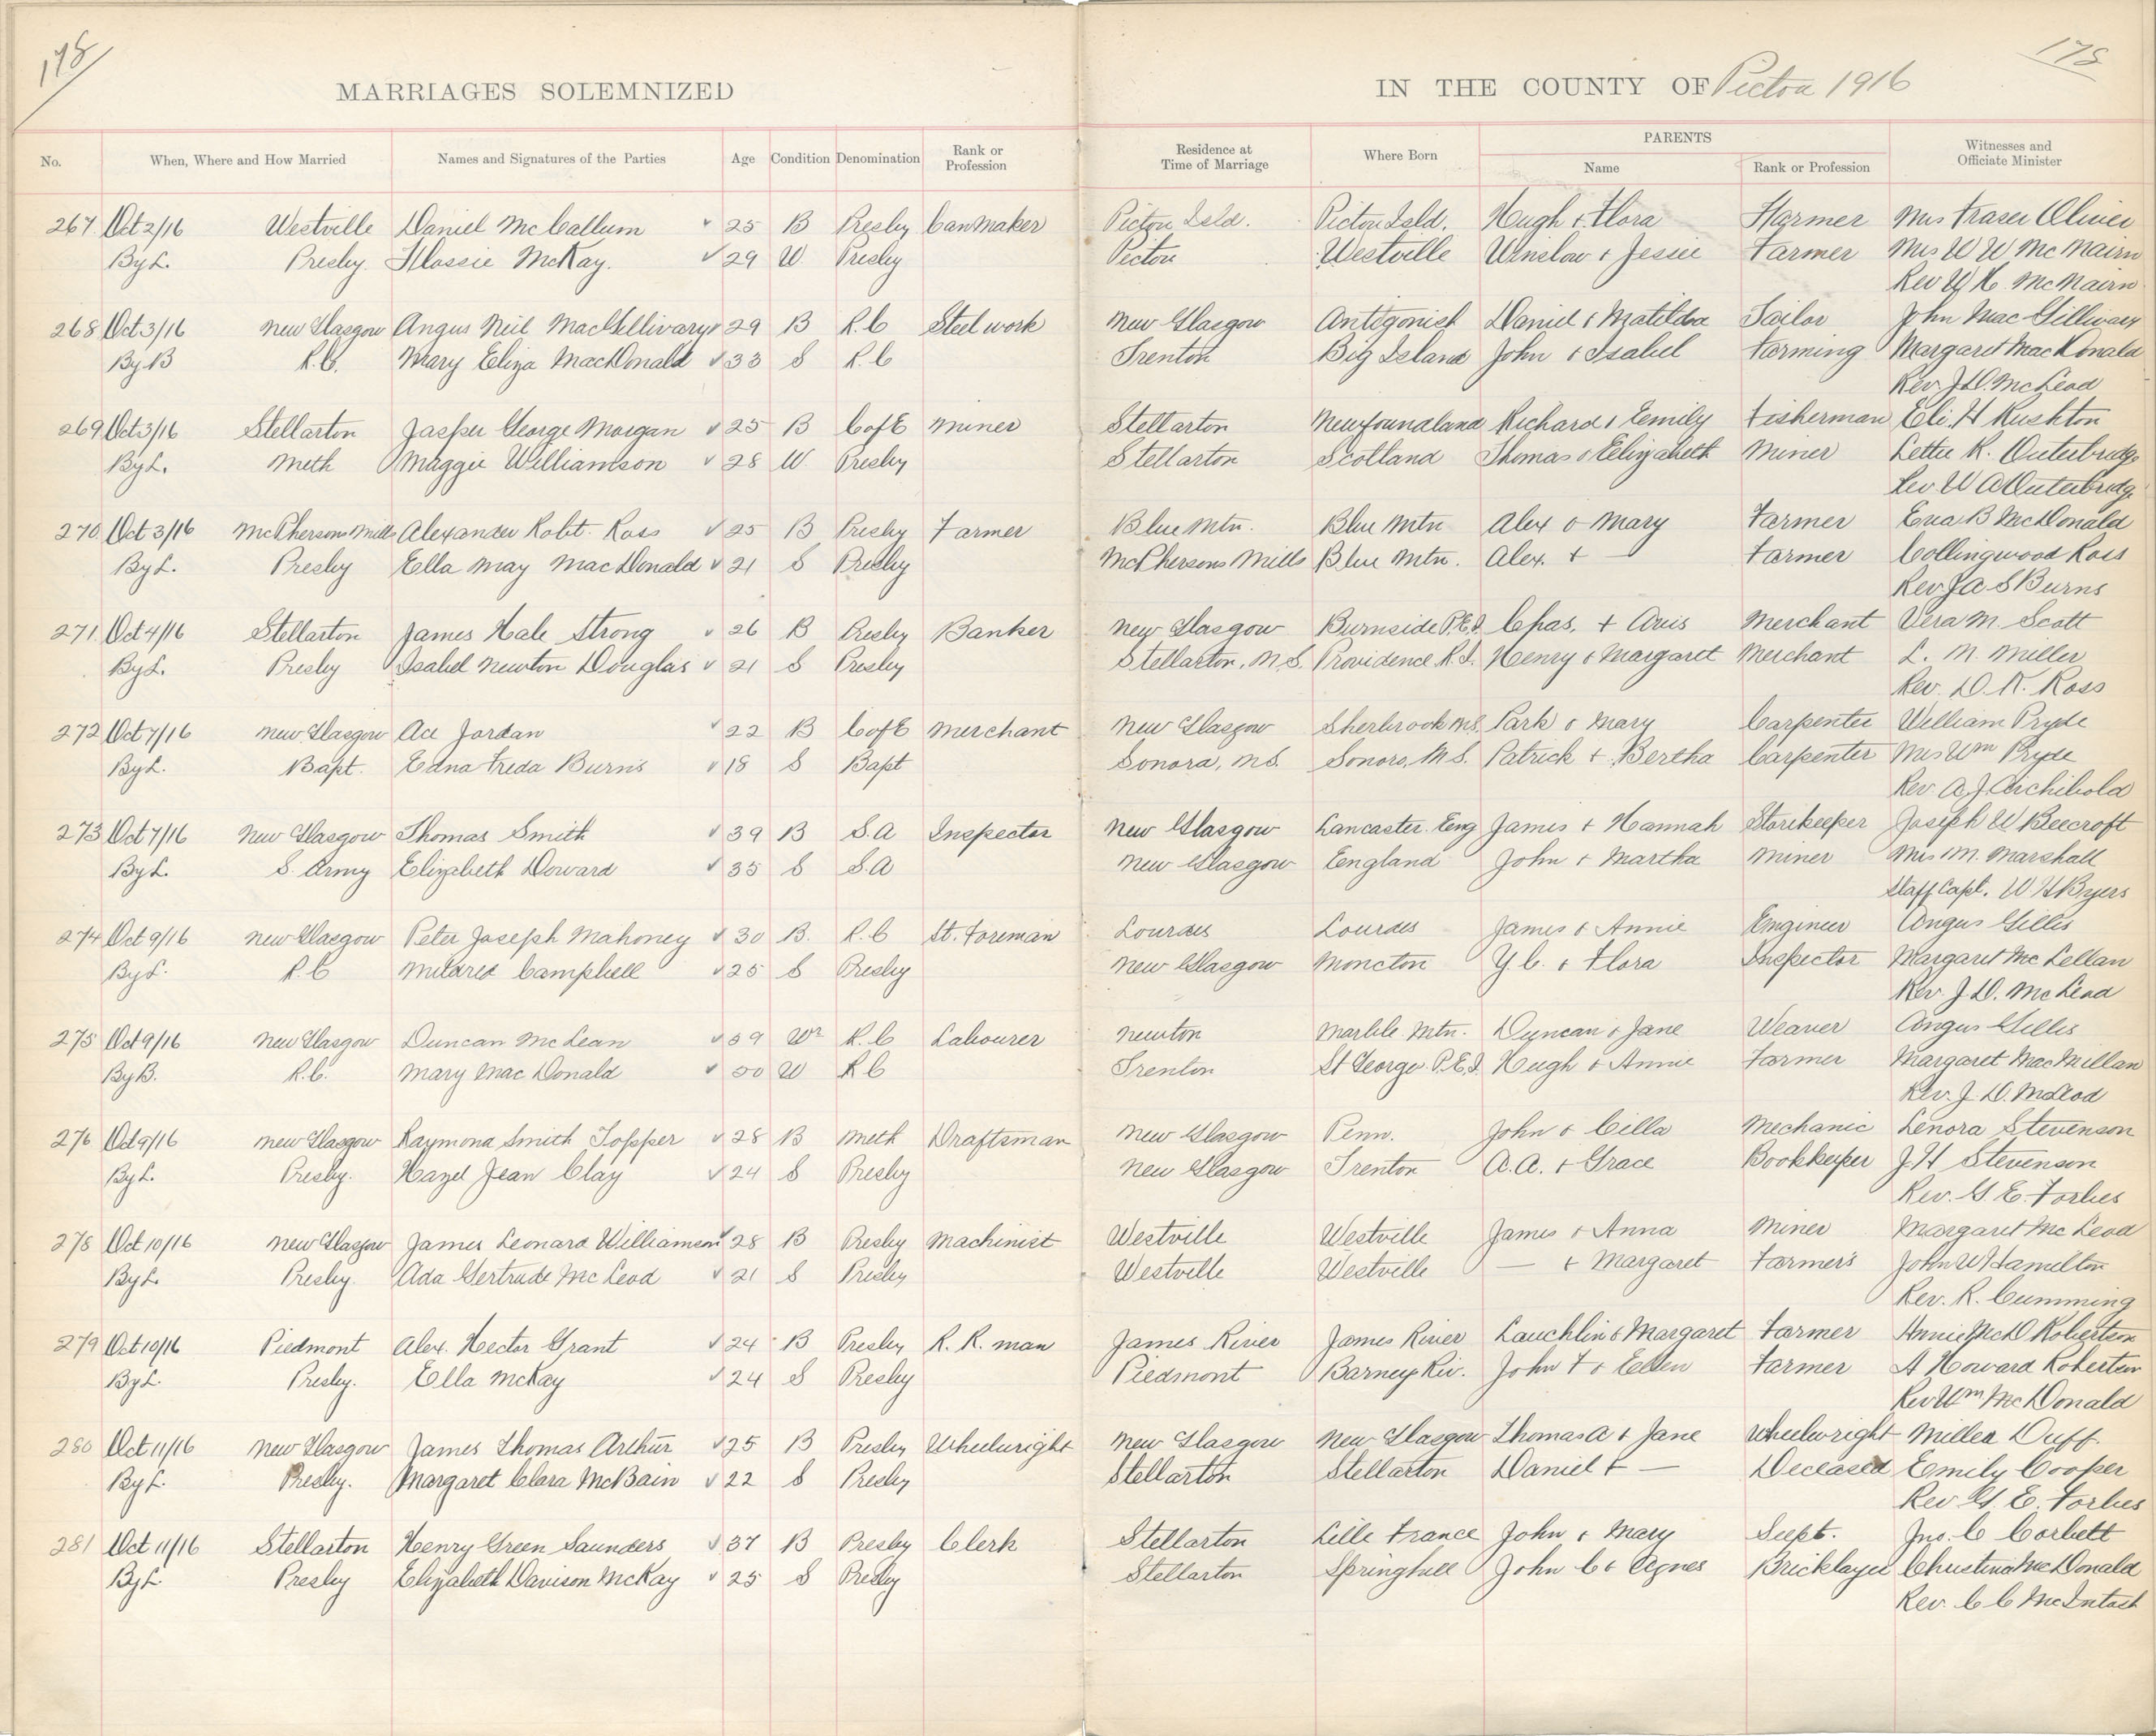 178
178
MARRIAGES SOLEMNIZED IN THE COUNTY OF Pictou 1916
No. When, Where and How Married Names and Signatures of the Parties Age Condition Denomination Rank or Profession Residence at Time of Marriage Where Born PARENTS Name Rank or Profession Witnesses and Officiate Minister
267 Oct 2/16 Westville Daniel McCallum 25 B Presby Can Maker Pictou Isld. Pictou Isld. Hugh + Flora Farmer Mrs Fraser Oliver
By L. Presby. Flossie McKay. 29 W Presby Pictou Westville Winslow + Jessie Farmer Mrs W W McNairn
Rev W H McNairn
268 Oct 3/16 New Glasgow Angus Neil MacGillivary 29 B R.C Steel work New Glasgow Antigonish Daniel + Matilda Tailor John MacGillivary
By B R.C. Mary Eliza MacDonald 33 S R.C Trenton Big Island John + Isabel Farming Margaret MacDonald
Rev. J.D. McLeod
269 Oct 3/16 Stellarton Jasper George Morgan 25 B C of E Miner Stellarton Newfoundland Richard + Emily Fisherman Eli. H Rushton
By L. Meth Maggie Williamson 28 W Presby Stellarton Scotland Thomas + Elizabeth Miner Lettie R. Outerbridge
Rev. W A Outerbridge
270 Oct 3/16 McPhersons Mills Alexander Robt. Ross 25 B Presby Farmer Blue Mtn. Blue Mtn Alex + Mary Farmer Eva B McDonald
By L. Presby Ella May MacDonald 21 S Presby McPhersons Mills Blue Mtn. Alex. + — Farmer Collingwood Ross
Rev J A S Burns
271 Oct 4/16 Stellarton James Hale Strong 26 B Presby Banker New Glasgow Burnside P.E.I. Chas. + Avis Merchant Vera M. Scott
By L. Presby Isabel Newton Douglas 21 S Presby Stellarton, N.S. Providence R.I. Henry + Margaret Merchant L. N. Miller
Rev. D. K. Ross
272 Oct 7/16 New Glasgow Ace Jordan 22 B C of E Merchant New Glasgow Sherbrook N.S. Park + Mary Carpenter William Pryde
By L. Bapt. Edna Freda Burns 18 S Bapt Sonora, N.S. Sonora, N.S. Patrick + Bertha Carpenter Mrs Wm Pryde
Rev A. J. Archibald
273 Oct 7/16 New Glasgow Thomas Smith 39 B S.A Inspector New Glasgow Lancaster. Eng James + Hannah Storekeeper Joseph W Beecroft
By L. S. Army Elizabeth Doward 35 S S.A New Glasgow England John + Martha Miner Mrs M. Marshall
Staff Capt. W. H Byers
274 Oct 9/16 New Glasgow Peter Joseph Mahoney 30 B. R.C St. Foreman Lourdes Lourdes James + Annie Engineer Angus Gillis
By L. R.C Mildred Campbell 25 S Presby New Glasgow Moncton Y.C. + Flora Inspector Margaret McLellan
Rev. J. D. McLeod
275 Oct 9/16 New Glasgow Duncan McLean 59 Wr R.C Labourer Newton Marble Mtn. Duncan + Jane Weaver Angus Gillis
By B. R.C. Mary MacDonald 50 W R C Trenton St George P.E.I. Hugh + Annie Farmer Margaret MacMillan
Rev. J. D. McLeod
276 Oct 9/16 New Glasgow Raymond Smith Topper 28 B Meth Draftsman New Glasgow Penn. John + Cilla Mechanic Lenora Stevenson
By L. Presby. Hazel Jean Clay 24 S Presby New Glasgow Trenton A. A. + Grace Bookkeeper J. H Stevenson
Rev. G. E. Forbes
278 Oct 10/16 New Glasgow James Leonard Williamson 28 B Presby Machinist Westville Westville James + Anna Miner Margaret McLeod
By L. Presby. Ada Gertrude McLeod 21 S Presby Westville Westville — + Margaret Farmer's John W Hamilton
Rev. R. Cumming
279 Oct 10/16 Piedmont Alex. Hector Grant 24 B Presby R. R. man James River James River Lauchlin + Margaret Farmer Annie McD Robertson
By L. Presby. Ella McKay 24 S Presby Piedmont Barneys Riv. John F + Ellen Farmer A Howard Robertson
Rev Wm McDonald
280 Oct 11/16 New Glasgow James Thomas Arthur 25 B Presby Wheelwright New Glasgow New Glasgow Thomas A + Jane Wheelwright Millea Duff.
By L. Presby. Margaret Clara McBain 22 S Presby Stellarton Stellarton Daniel + — Deceased Emily Cooper
Rev G. E. Forbes
281 Oct 11/16 Stellarton Henry Green Saunders 37 B Presby Clerk Stellarton Lille France John + Mary Supt. Jno. C Corbett
By L. Presby Elizabeth Davison McKay 25 S Presby Stellarton Springhill John C + Agnes Bricklayer Christina McDonald
Rev. C C McIntosh